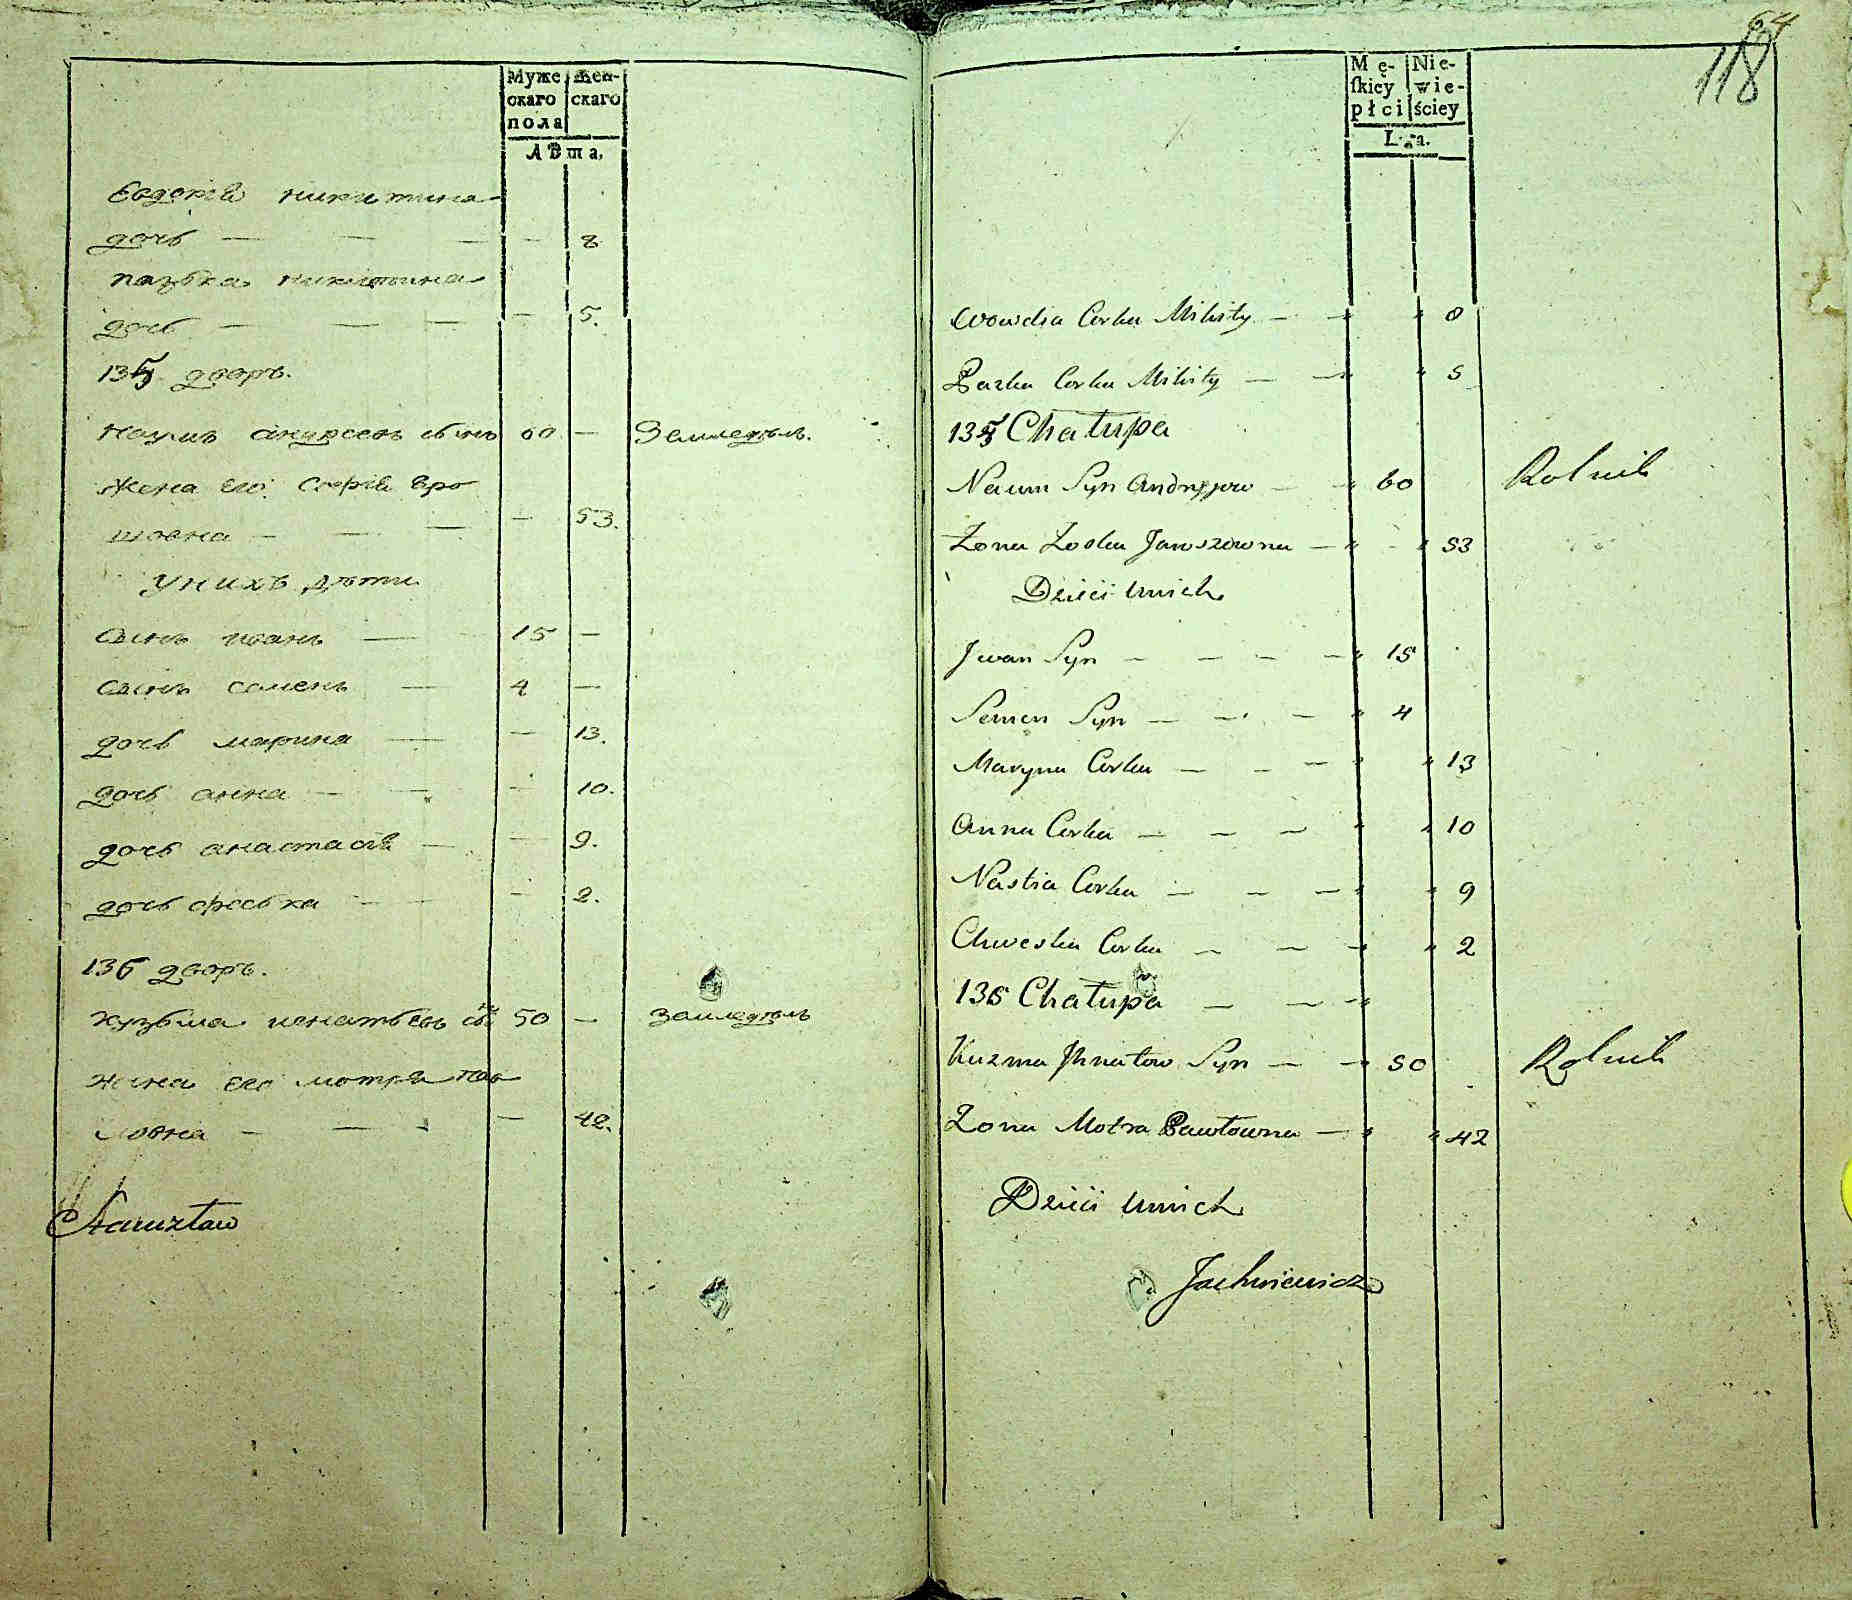 Муже
скаго
пола
Жен-
скаго
Лѣта.
Евдокіѣ никитина
дочь — — — — 8
пазька никитина
дочь — — — — 5.
135 дворъ.
Наумъ андреевъ сынъ 60 — Земледѣлъ.
Жена его Софіѣ яро
шовна — — — — 53.
У нихъ дѣти
Сынъ иванъ — 15 —
Сынъ семенъ — 4 —
дочь марина — — 13.
дочь анна — — — 10.
дочь анастасіѣ — — 9.
дочь феська — — — 2.
136 дворъ.
Кузьма игнатьевъ сы: 50 — Земледѣлъ
жена его мотрѣ пав
ловна — — — — 42.
64
118
Mę-
skiey
płci
Nie-
wie-
ściey
Lata.
Wowdia Corka Mikity — " " 8
Pazka Corka Mikity — " " 5
135 Chałupa
Naum Syn Andryjow — " 60 Rolnik
Żona Zoska Jaroszowna — " " 53
Dzieci unich
Jwan Syn — — — — " 15
Semen Syn — — — " 4
Maryna Corka — — — " " 13
Anna Corka — — — " " 10
Nastia Corka — — — " " 9
Chweska Corka — — — " 2
136 Chałupa — — —
Kuzma Jhnatow Syn — — 50 Rolnik
Żona Motra Pawłowna — " " 42
Dzieci unich
Jachniewicz